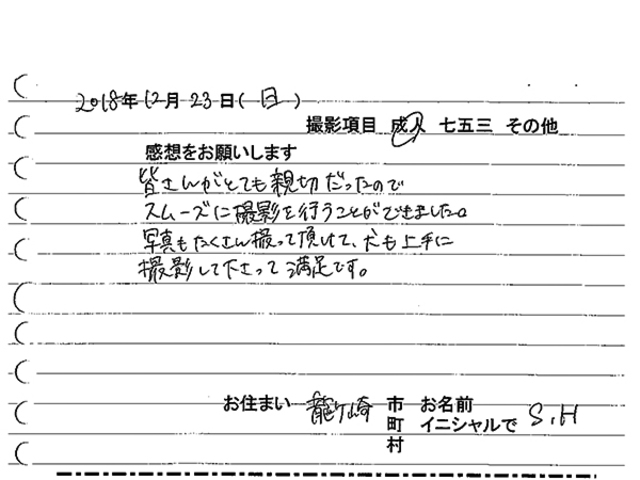 2018年12月23日(日)
撮影項目 成人 七五三 その他
感想をお願いします
皆さんがとても親切だったので
スムーズに撮影を行うことができました。
写真もたくさん撮って頂けて、犬も上手に
撮影して下さって満足です。
お住まい 龍ケ崎 市 お名前
町 イニシャルで S.H
村